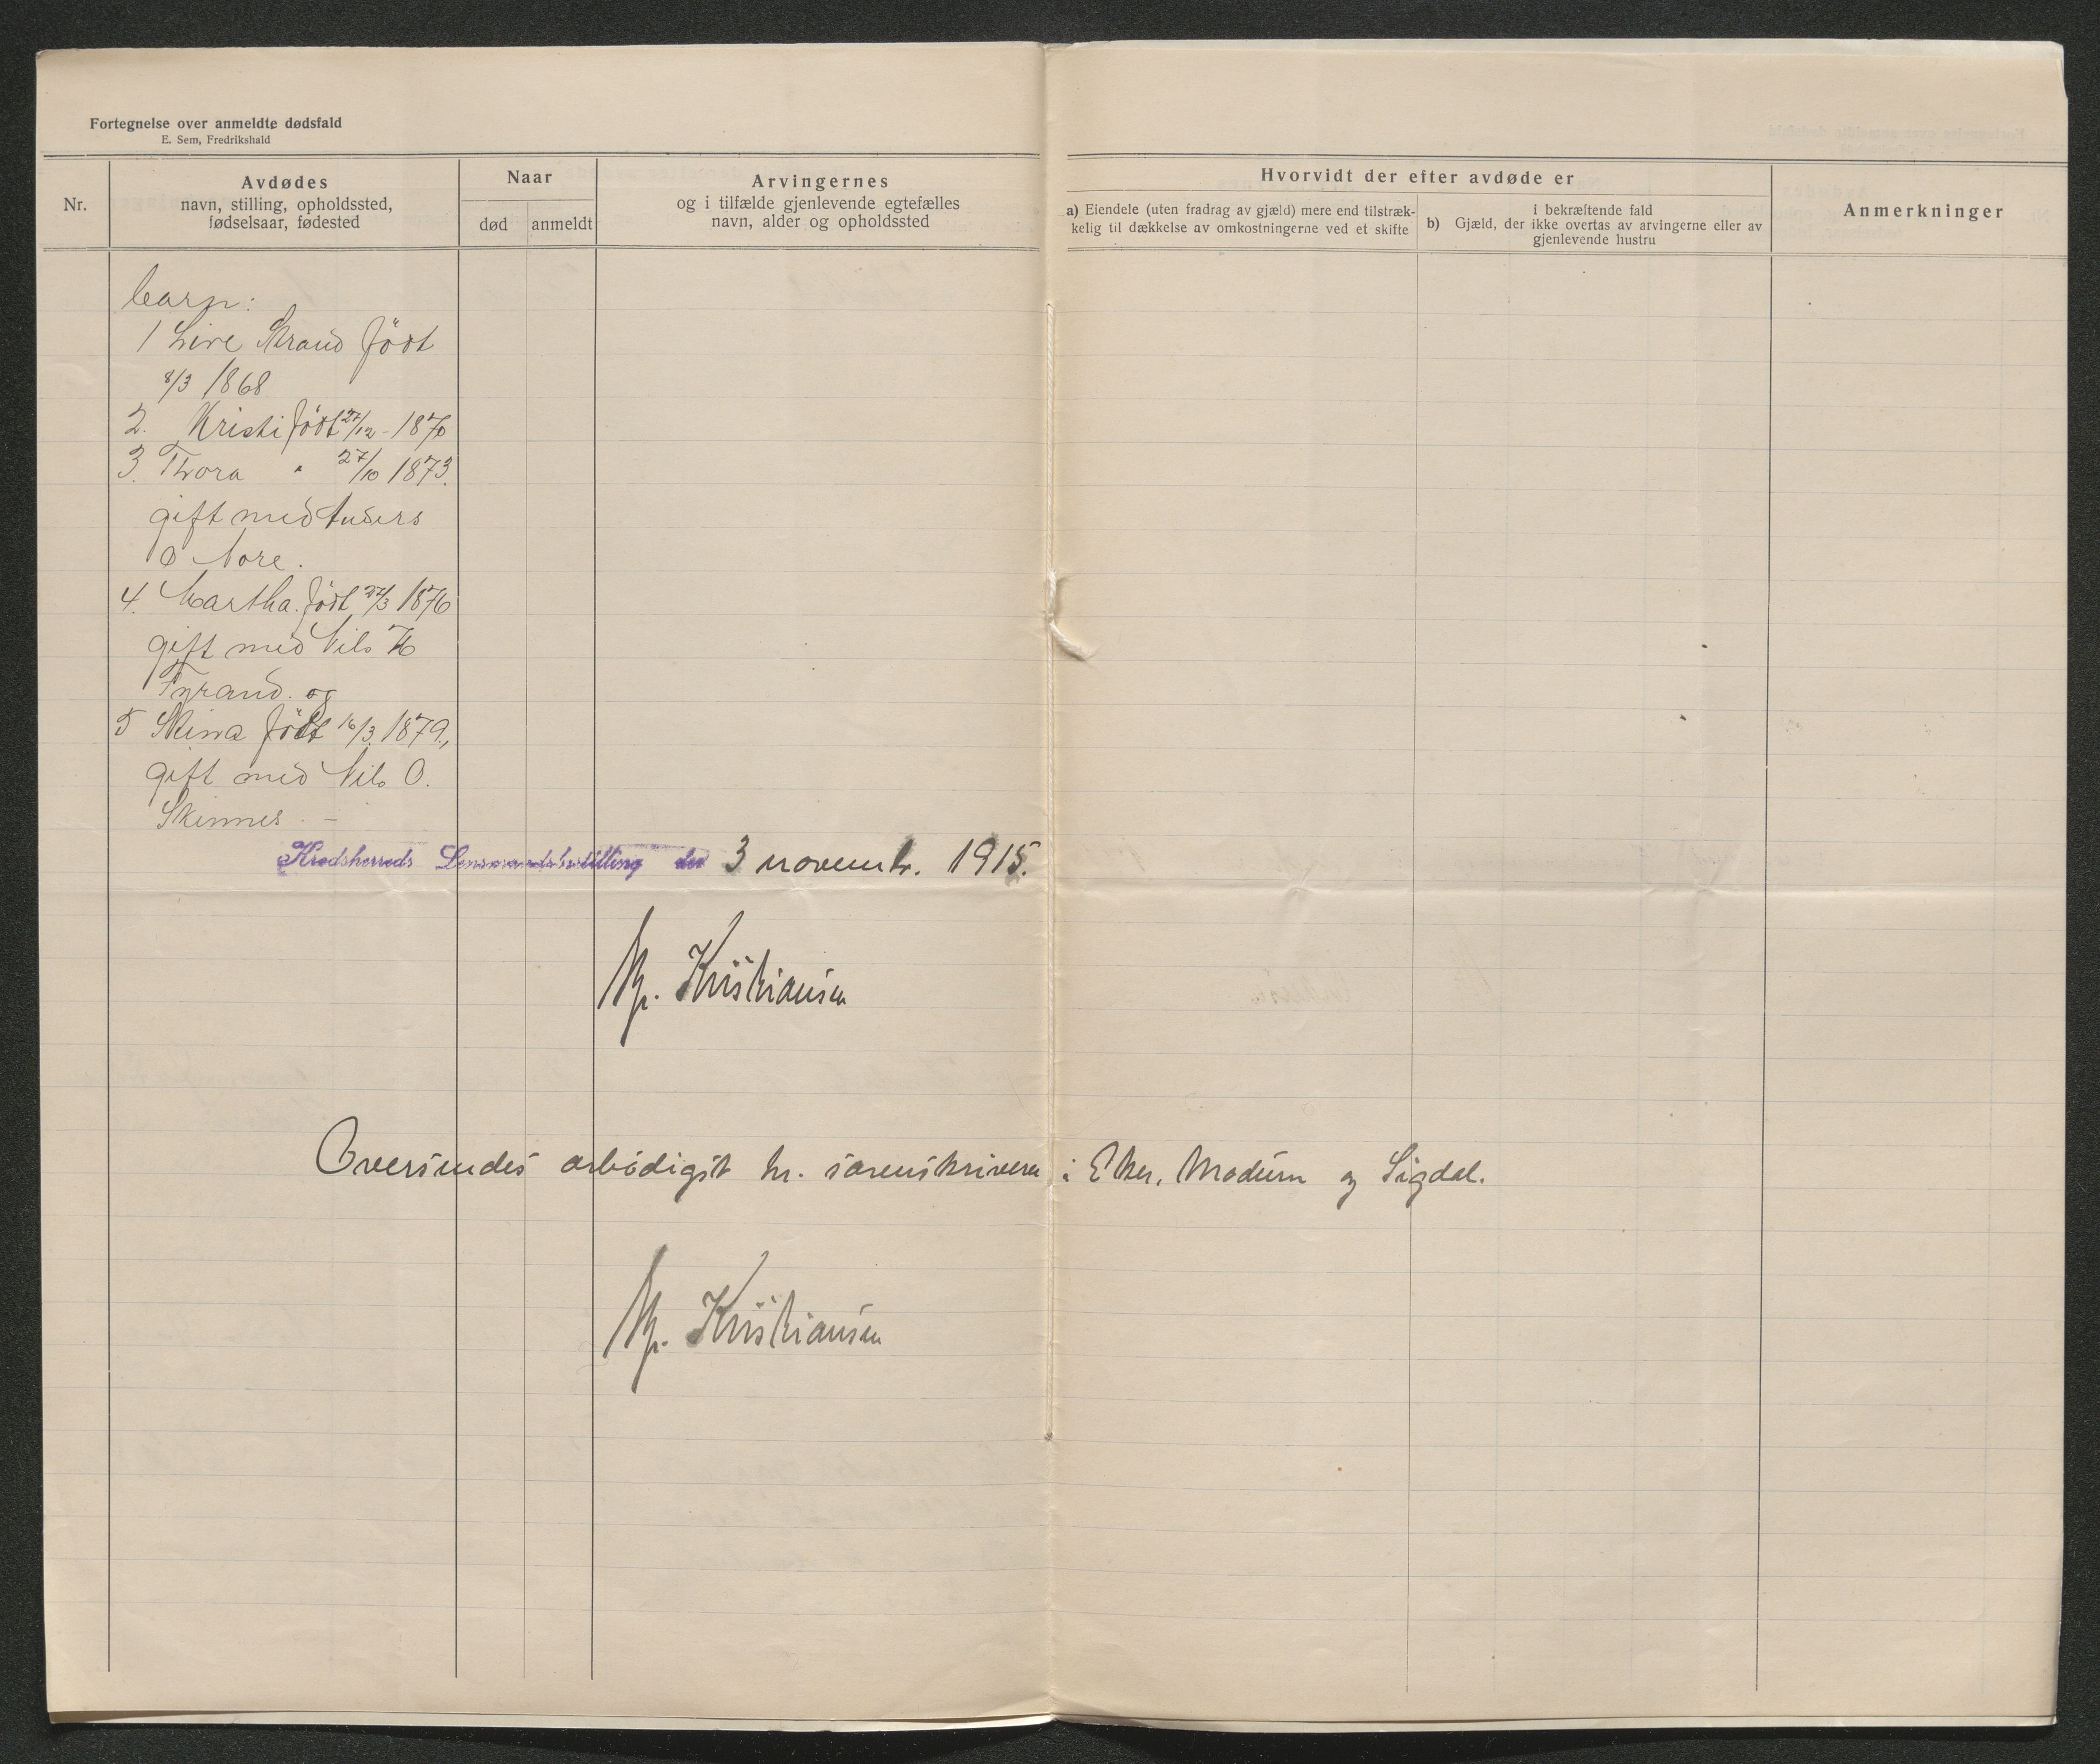 Fortegnelse over anmeldte dødsfald
E. Sem, Fredrikshald
Nr.
Avdødes
navn, stilling, opholdssted,
fødselsaar, fødested
Naar
død
anmeldt
Arvingernes
og i tilfælde gjenlevende egtefælles
navn, alder og opholdssted
Hvorvidt der efter avdøde er
a) Eiendele (uten fradrag av gjæld) mere end tilstræk-
kelig til dækkelse av omkostningerne ved et skifte
i bekræftende fald
b) Gjæld, der ikke overtas av arvingerne eller av
gjenlevende hustru
Anmerkninger
barn:
1 Live Strand födt
8/3 1868
2. Kristi födt 27/12 - 1870
3. Thora " 27/10 1873.
gift med Anders
O Nore.
4. Martha. födt 27/3 1876
gift med Nils H
Fyrand. og
5 Stina födt 16/3. 1879.,
gift med Nils O.
Skinnes. -
Krødsherreds Lensmandsbestilling den 3 novembr. 1915.
Kristiansen
Oversendes ærbödigst hr. sorenskriveren i Eker, Modum og Sigdal.
Kristiansen